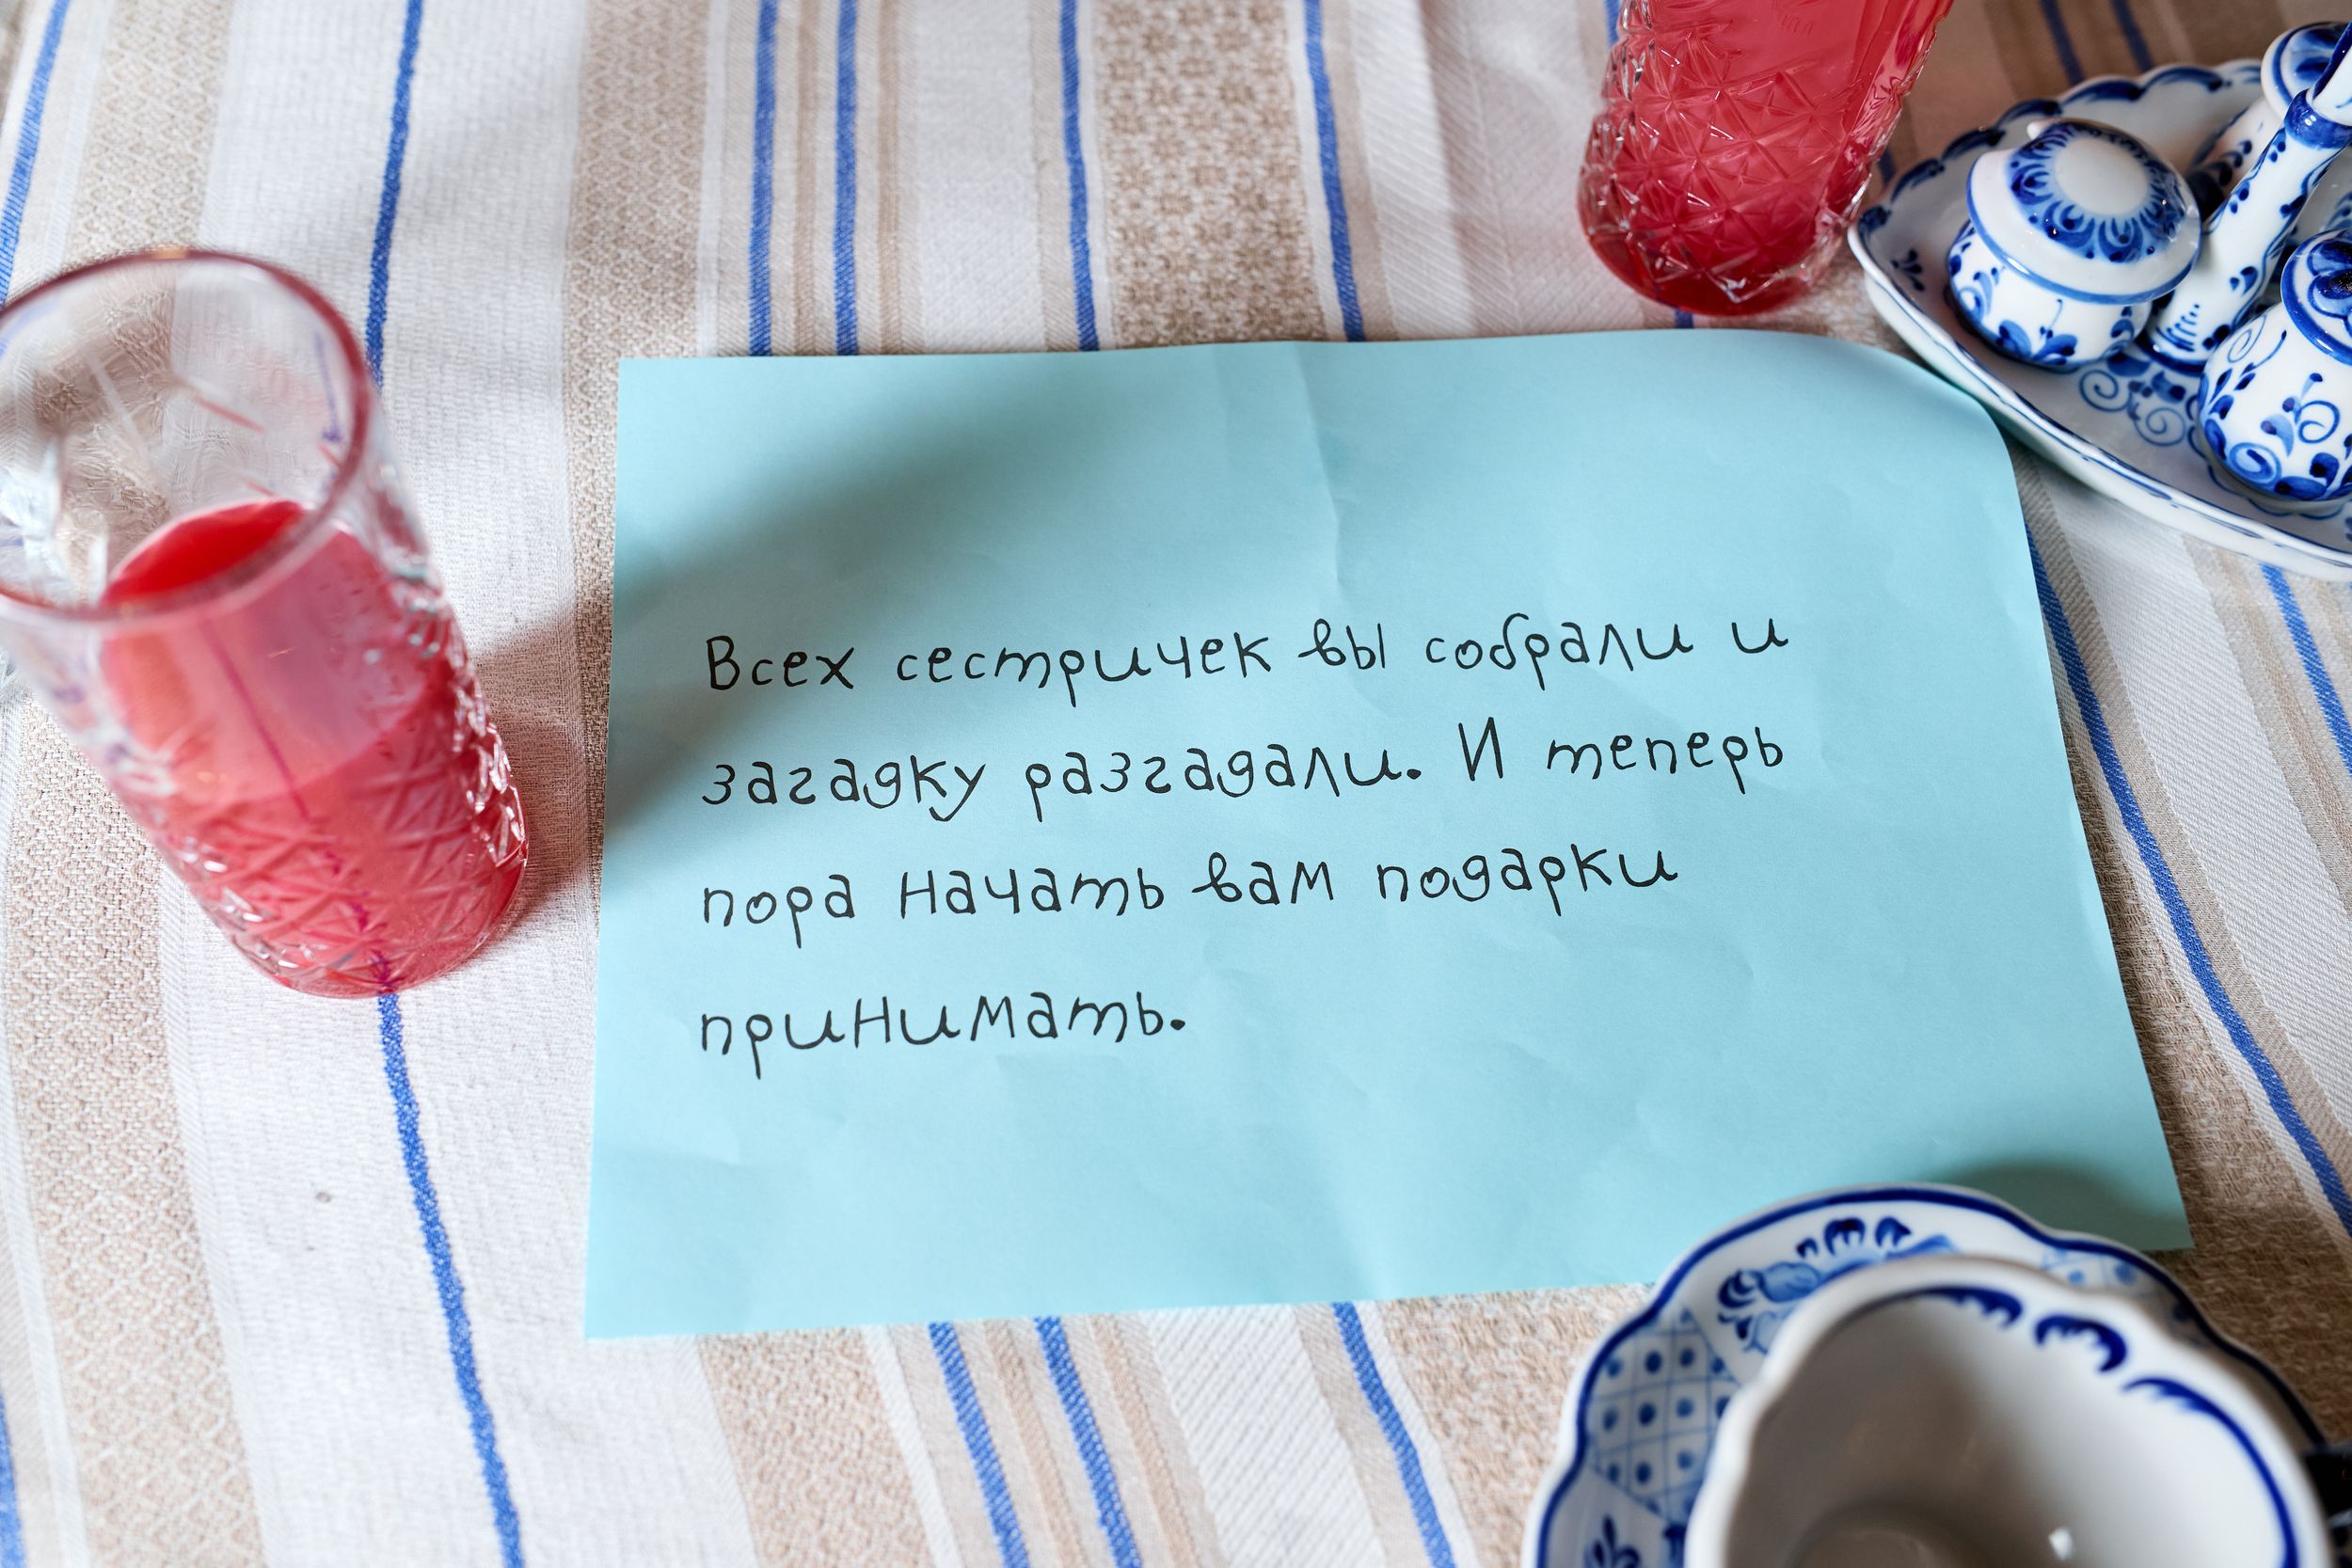 Всех сестричек вы собрали и
загадку разгадали. И теперь
пора начать вам подарки
принимать.